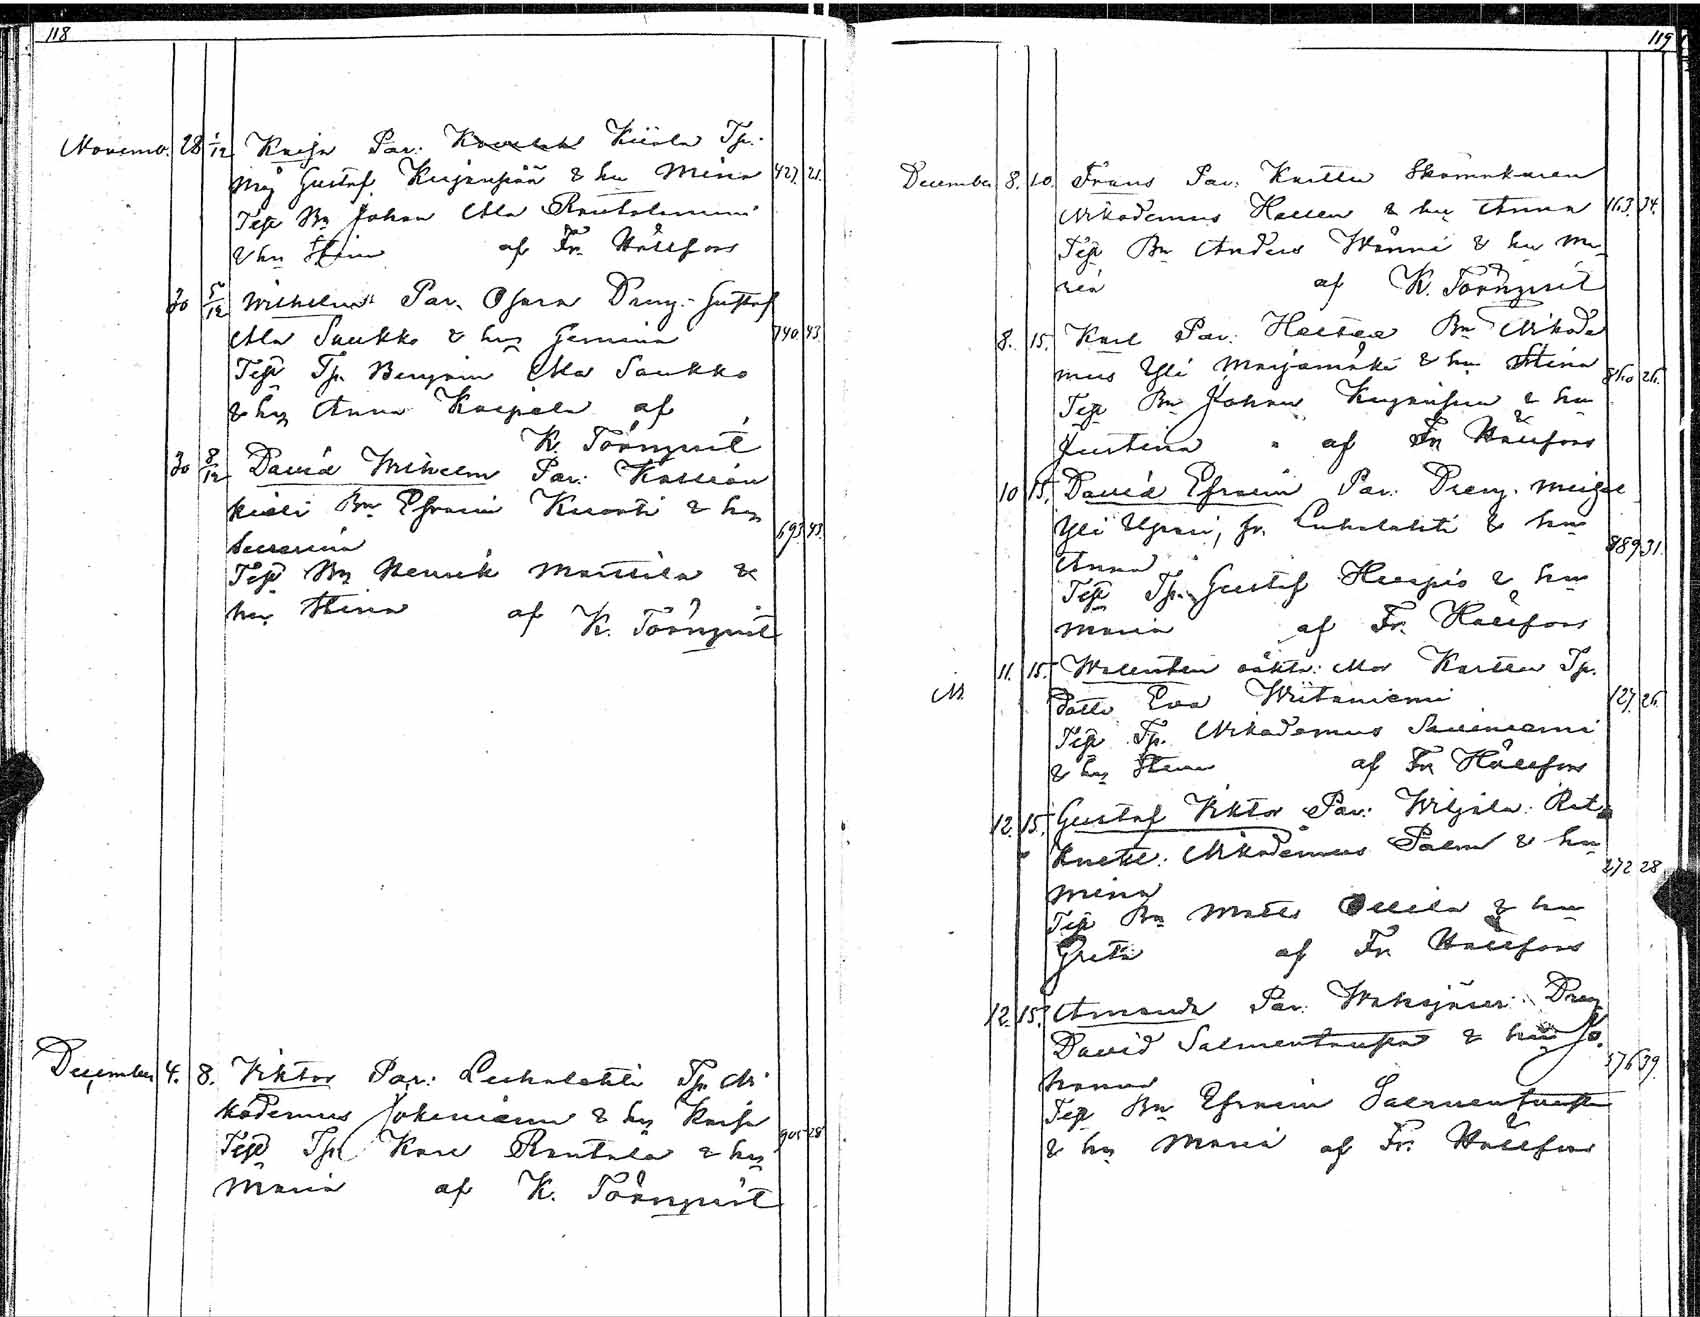 118
Novemb. 28 1/12 Kaisa Par: Kiiala Tp.
Måg Gustaf Kujanpää & hu Mina 427. 21.
Tep Bn Johan Ala Rautalammi
& hu Stina af Fr. Hällfors
30 5/12 Wilhelm Par. Ojara Dreng. Gustaf
Ala Saukko & hu Gemina 740 43.
Tep Tp. Benjam Ala Saukko
& hu Anna Knipela af
K. Törnqvist
30 8/12 David Wilhelm Par:
Bn Efraim & hu
693 43.
Tep Bn Henrik Mattila &
hu Stina af K. Törnqvist
December 4. 8. Viktor Par: Luhalahti Tp. Ni
kodemus Jokiniemi & hu Kaisa
Tep Tp. Karl Rautala & hu 905 28
Maria af K. Törnqvist
119
December 8. 10. Frans Par: Karttu
Nikodemus & hu Anna 163. 34.
Tep Bn Anders Wänni & hu Ma
ria af K. Törnqvist
8. 15. Karl Par: Bn Nikode
mus Yli Marjamäki & hu Stina 860 26.
Tep Bn Johan Kujanpää & hu
Justina af Fr. Hällfors
10 15. David Efraim Par: Dreng.
Yli fr. Luhalahti & hu 889 31.
Anna
Tep Tp. Gustaf & hu
Maria af Fr. Hällfors
11. 15. Walentin oäkta: Mor Karttu Tp.
dott. Eva Wiitaniemi 127. 26.
Tep Tp. Nikodemus Sauiniemi
& hu Stina af Fr Hällfors
12. 15. Gustaf Viktor Par: Wiljala: Rot
Knekt: Nikodemus Palm & hu 272 28
Mina
Tep Bn Matts Ollila & hu
Greta af Fr. Hällfors
12. 15. Amanda Par: Wahojärvi: Dreng
David Salmentausta & hu Jo.
hanna 576 39.
Tep Bn Efraim Salmentausta
& hu Maria af Fr. Hällfors